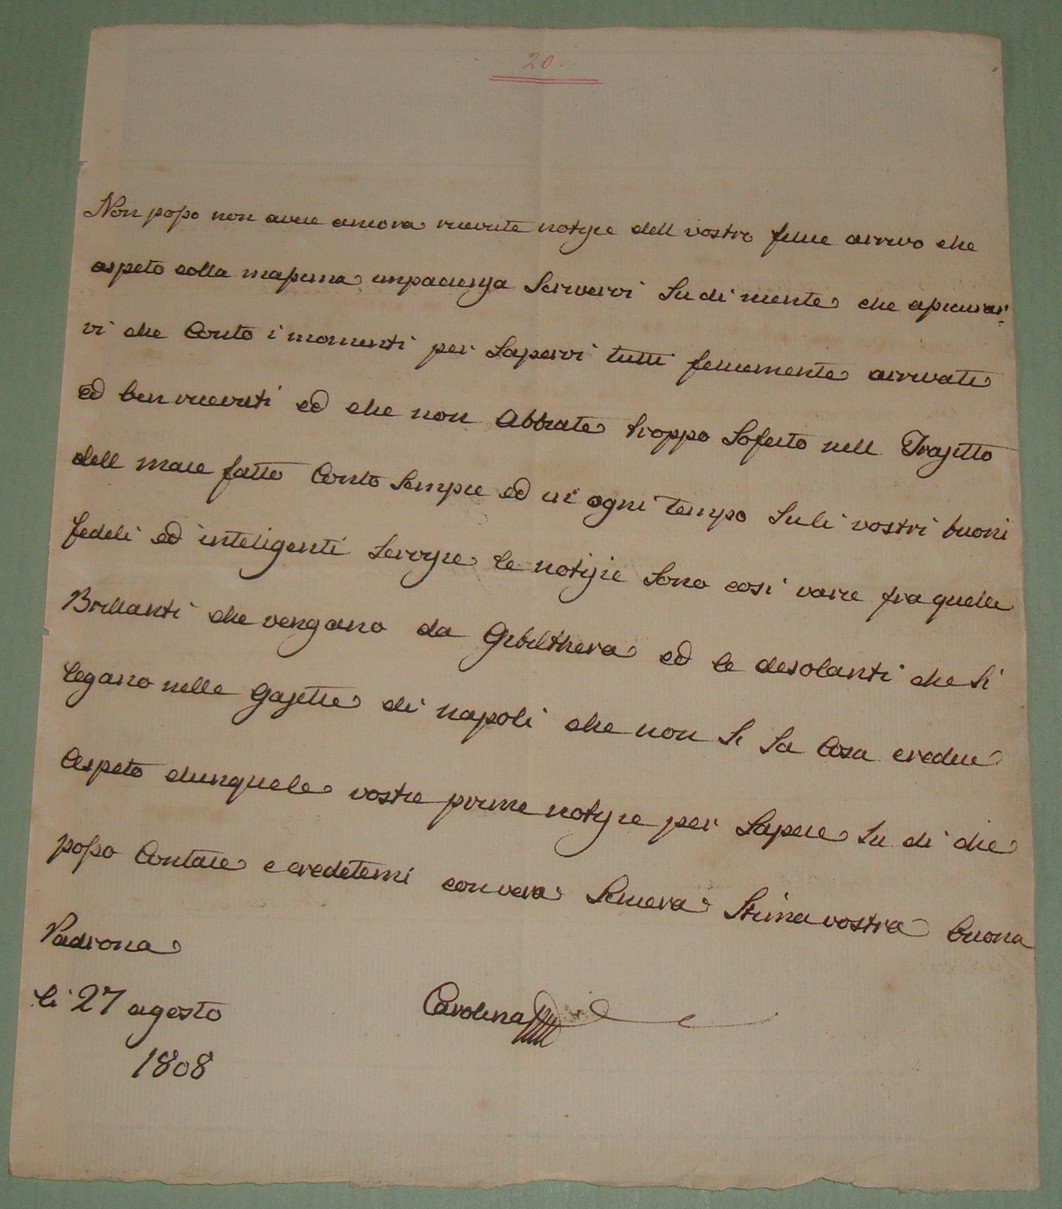 20.
Non posso non avere ancora ricevute notizie dell vostro felice arrivo che
aspeto colla massima impacienza Scrivervi Su di niente che assicurar-
vi che Conto i momenti per Sapervi tutti felicemente arrivati
ed ben ricevuti ed che non Abbiate troppo Soferto nell Trajetto
dell mare fatte Conto Sempre ed in ogni Tempo Suli vostri buoni
fedeli ed inteligenti Servizie le notizie Sono cosi varie fra quelle
Brillanti che vengano da Gibilthera ed le desolanti che Si
legano nelle Gazette di napoli che non Si Sa Cosa credere
Aspeto dunque le vostre prime notizie per Sapere Su di che
posso Contare e credetemi con vera Sincera Stima vostra buona
Padrona
li 27 agosto
1808
Carolina